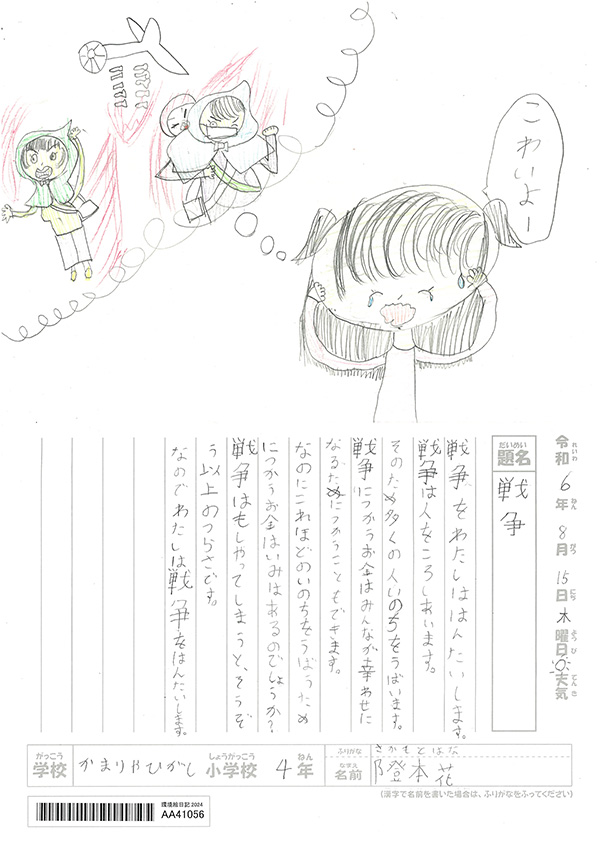 こわいよー
令和6年8月15日木曜日天気
れいわ ねん がつ にち ようび てんき
だいめい
題名
戦争
戦争をわたしははんたいします。
戦争は人をころしあいます。
そのため多くの人いのちをうばいます。
戦争につかうお金はみんなが幸わせに
なるためにつかうこともできます。
なのにこれほどのいのちをうばうため
につかうお金はいみはあるのでしょうか？
戦争はもしやってしまうと、そうぞ
う以上のつらさです。
なのでわたしは戦争をはんたいします。
がっこう しょうがっこう ねん ふりがな さかもとはな
学校 かまりやひがし 小学校 4年 なまえ 名前 本花
(漢字で名前を書いた場合は、ふりがなをふってください)
環境絵日記 2024
AA41056